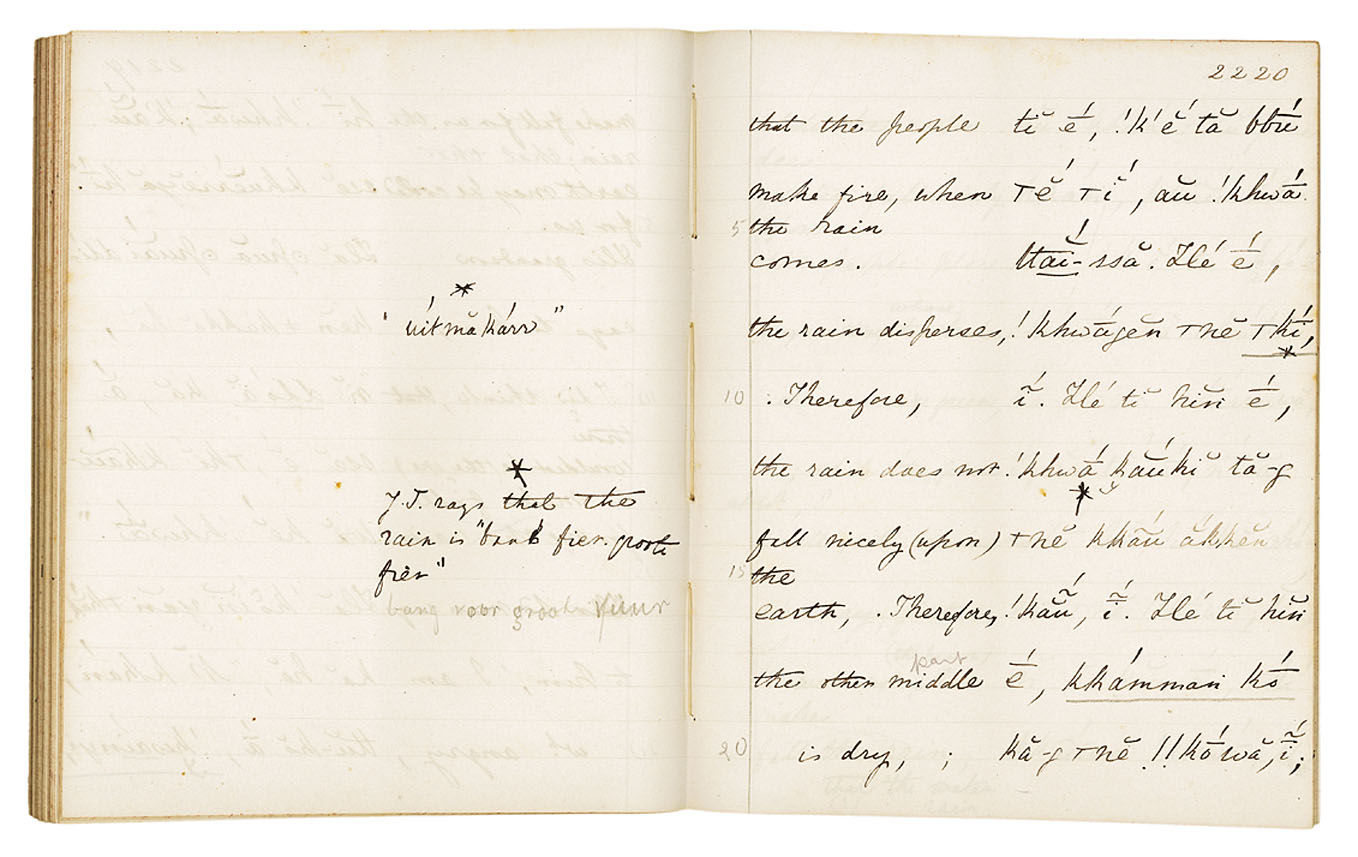 "úitmăkárr"
J.T. says that the
rain is "bank fier. groote
fiér"
bang voor groote vuur
2220
that the people tĭ é̄, !k'ĕ́ tă bbū́
make fire, when ⊤ĕ́ ⊤ĭ́, aŭ !khwā́
5 the rain
comes. ttaī̆́-ssă. Hé é̄,
the rain disperses, !khwā́gĕn ⊤nĕ ⊤kı̄́,
10 . Therefore, ī̃. Hé tĭ hĭn é̄,
the rain does not !khwā́ kaŭ́kĭ tă-g
fall nicely (upon) ⊤nĕ kkaŭ́ ăkken
15 the
earth, . Therefore, !kaŭ̃́, ī̃́. Hé tĭ hĭn
part
the other middle é̄, kkámman kṓ
20 is dry, ; kă-g ⊤nĕ !!kṓwă, ī̃́;